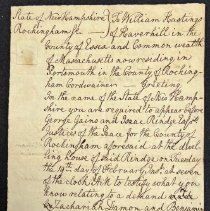 State of New Hampshire } To William Hastings
Rockingham Ss. } of Haverhill in the
County of Essex and Common wealth
of Massachusetts now residing in
Portsmouth in the County of Rocking-
ham Cordwainer Greeting
In the name of the State of New Hamp-
shire you are required to appear before
George Gains and Isaac Rindge Esqrs
Justices of the Peace for the County of
Rockingham aforesaid at the dwel-
ling house of said Rindge on Tuesday
the 14th day of February Inst. at seven
of the clock P.M. to testify what you
know relating to a demand
Zachariah Damon and Benjamin